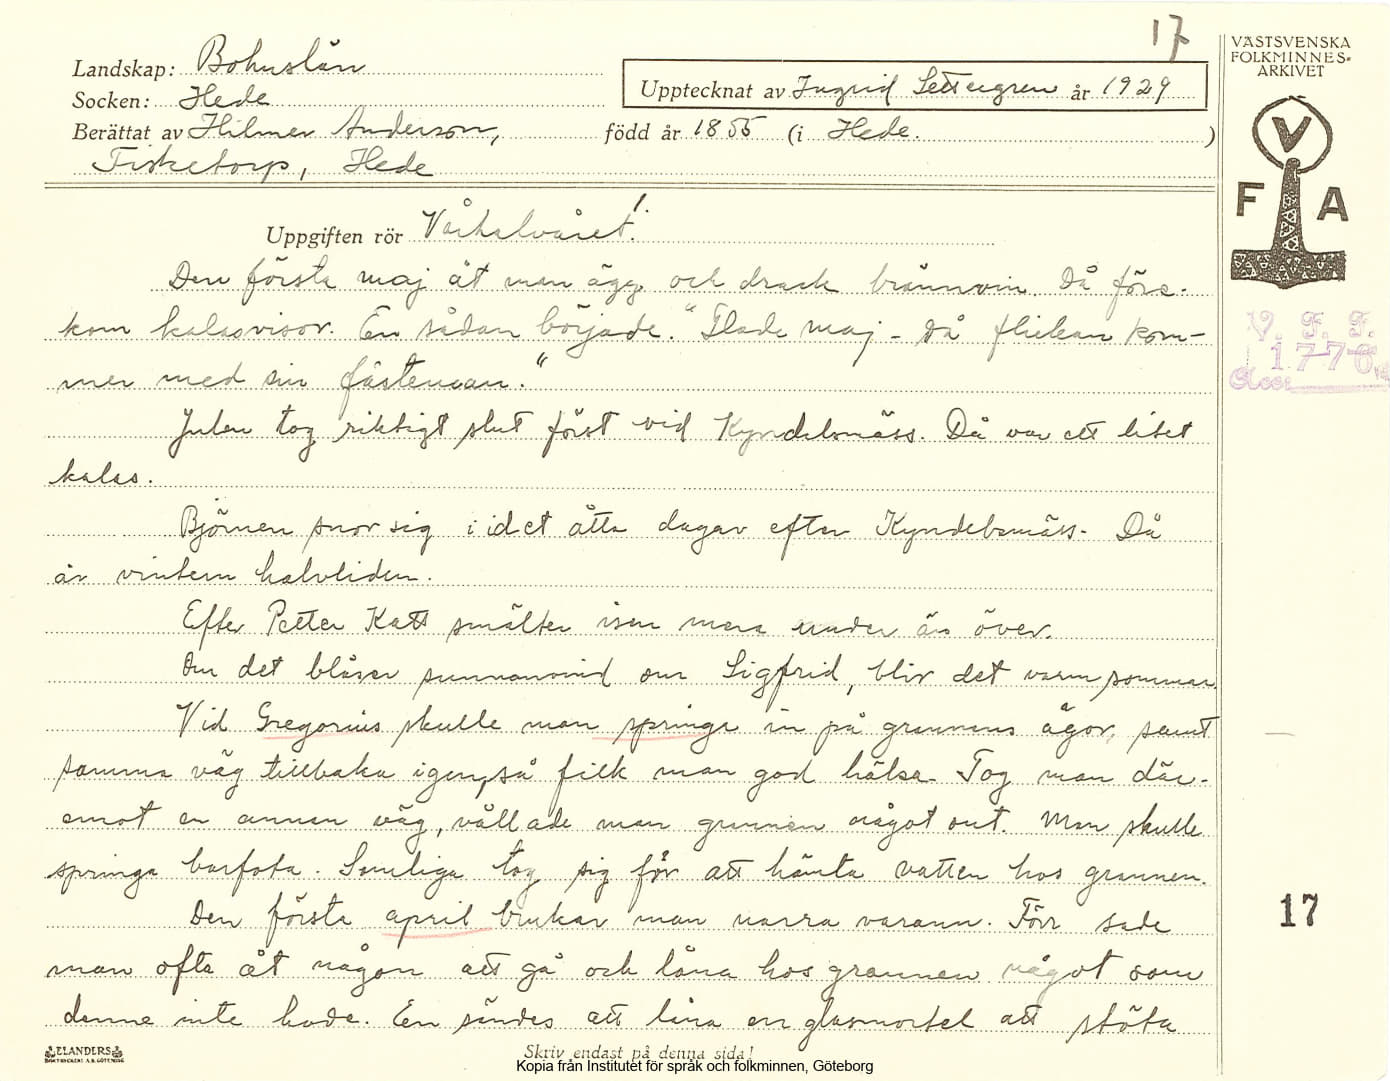 17
VÄSTSVENSKA
FOLKMINNES-
ARKIVET
Landskap: Bohuslän
Socken: Hede
Upptecknat av Ingrid Settergren år 1929
Berättat av Hilmer Anderson, född år 1855 (i Hede. )
Fisketorp, Hede
V
F A
Uppgiften rör Vårkalvåret!
Den första maj åt man ägg och drack brännvin. Då före-
kom kalasvisor. En sådan började. "Glade maj - då flickan kom-
mer med sin fästeman."
V. F. F.
1770
Acc.
Julen tog riktigt slut först vid Kyndelsmäss. Då var ett litet
kalas.
Björnen snor sig i idet åtta dagar efter Kyndelsmäss. Då
är vintern halvliden.
Efter Petter Katt smälter isen mera under än över.
Om det blåser sunnanvind om Sigfrid, blir det varm sommar.
Vid Gregorius skulle man springa in på grannens ägor, samt
samma väg tillbaka igen, så fick man god hälsa. Tog man där-
emot en annan väg, vållade man grannen något ont. Man skulle
springa barfota. Somliga tog sig för att hämta vatten hos grannen.
Den första april brukar man narra varann. Förr sade
17
man ofta åt någon att gå och låna hos grannen något som
denne inte hade. En sändes att låna en glasmortel att stöta
ELANDERS
Skriv endast på denna sida!
Kopia från Institutet för språk och folkminnen, Göteborg